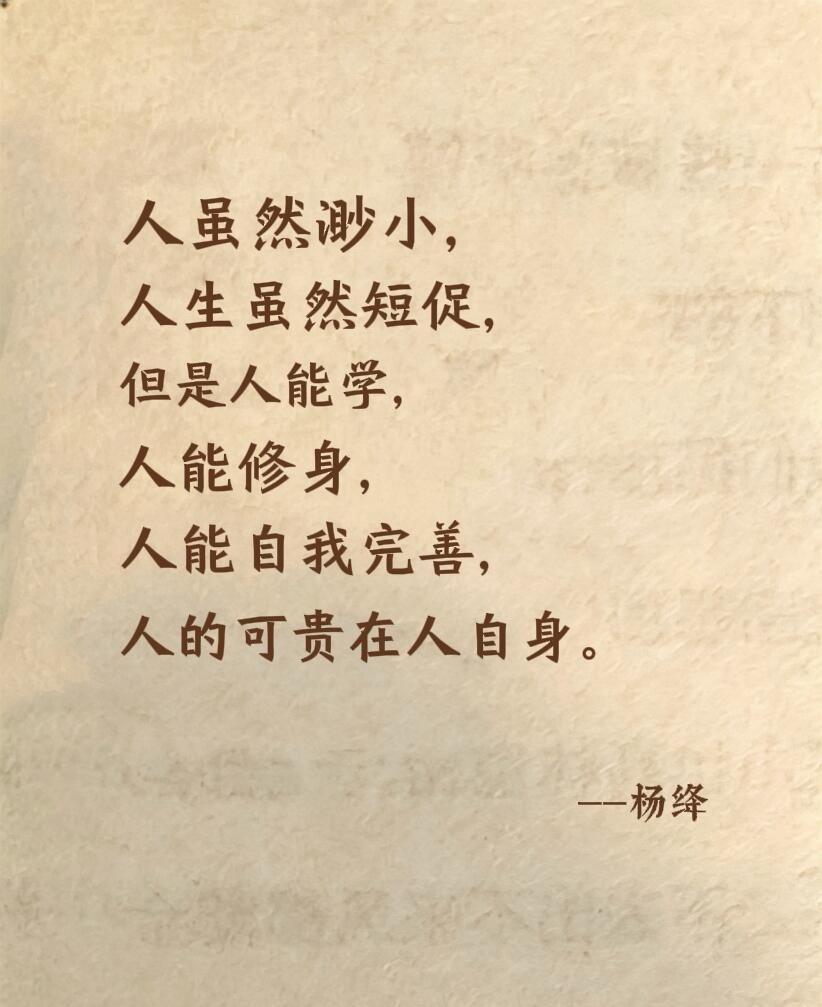 人虽然渺小，
人生虽然短促，
但是人能学，
人能修身，
人能自我完善，
人的可贵在人自身。
——杨绛